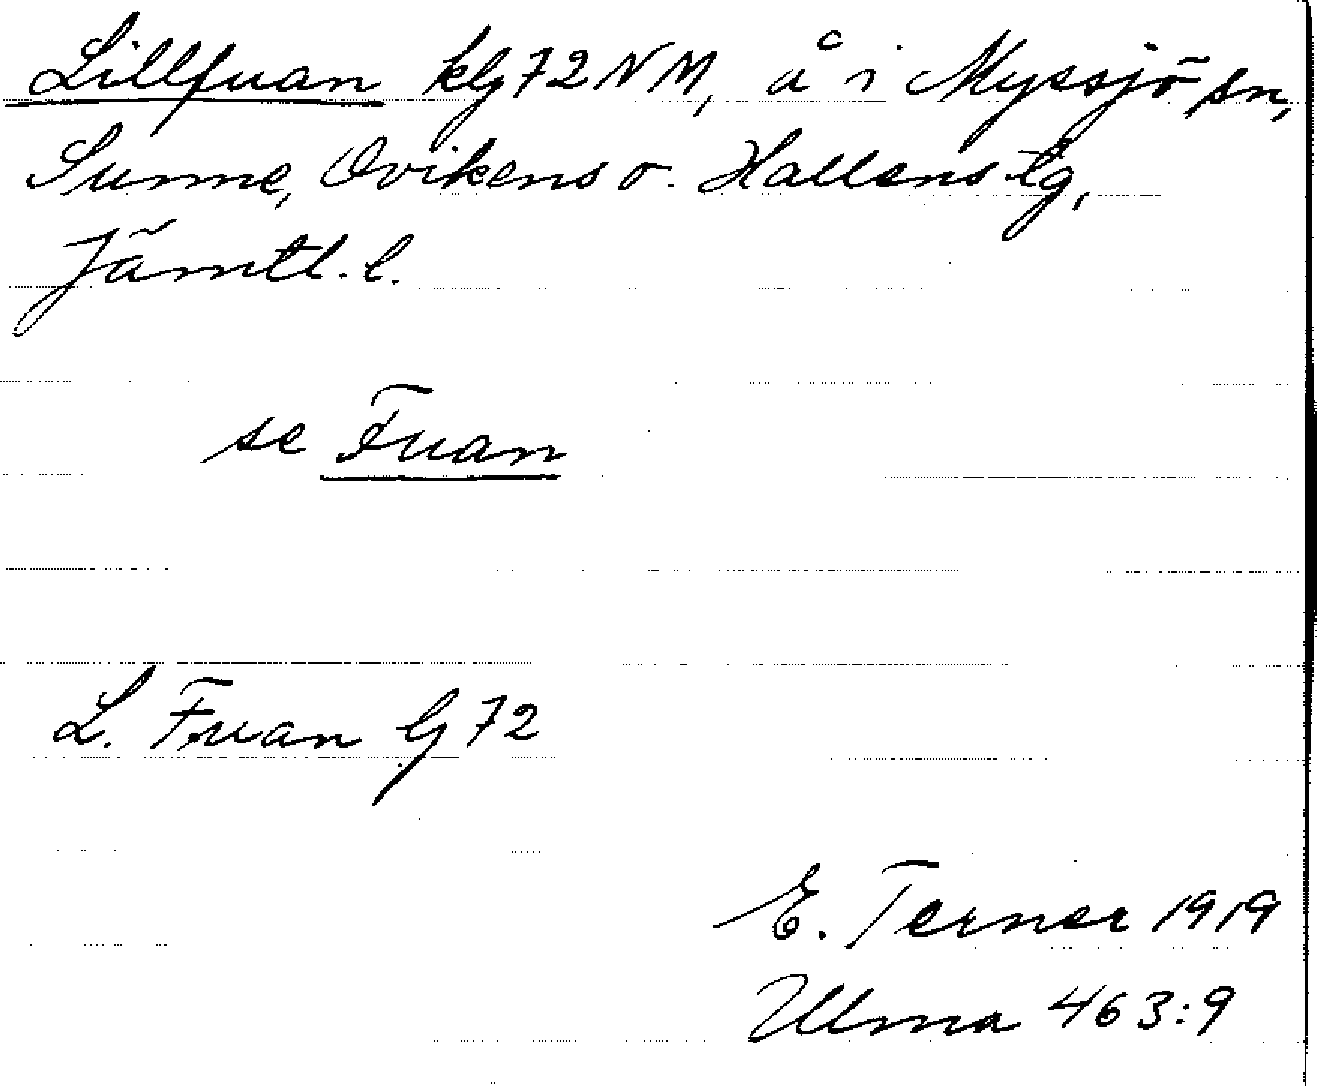 Lillfuan klg 72 NM, å i Myssjö sn,
Sunne, Ovikens o. Hallens tg,
Jämtl. l.
se Fuan
L. Fuan lg 72
E. Terner 1919
Ulma 463:9